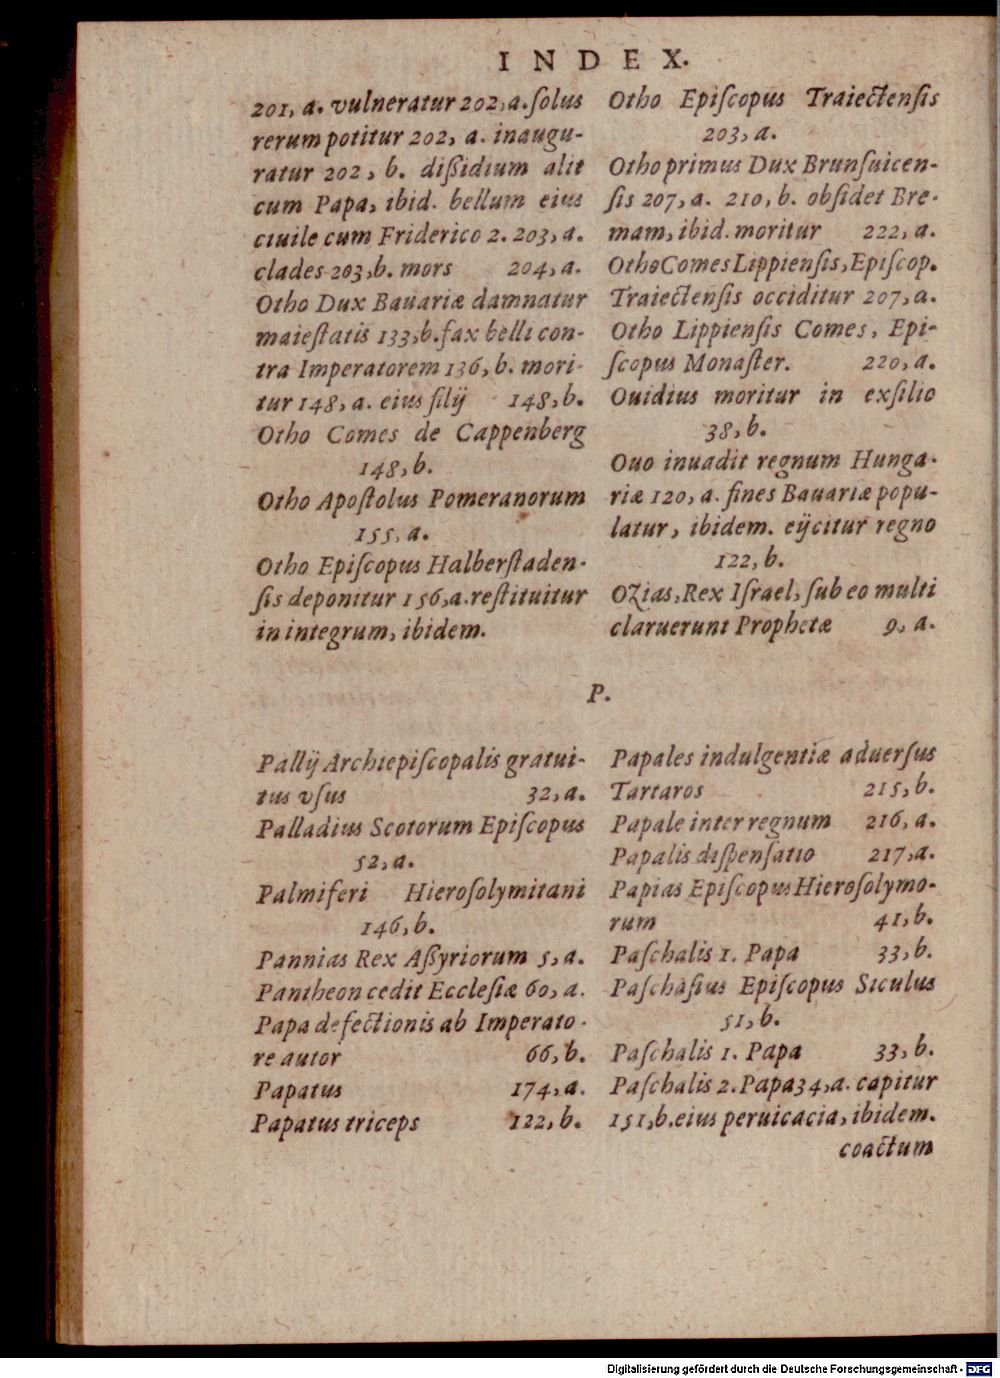 INDEX.
201, a. vulneratur 202, a. ſolus
rerum potitur 202, a. inaugu-
ratur 202, b. dißidium alit
cum Papa, ibid. bellum eius
ciuile cum Friderico 2. 203, a.
clades 203, b. mors 204, a.
Otho Dux Bauariæ damnatur
maieſtatis 133, b. fax belli con-
tra Imperatorem 136, b. mori-
tur 148, a. eius filij 148, b.
Otho Comes de Cappenberg
148, b.
Otho Apoſtolus Pomeranorum
155, a.
Otho Epiſcopus Halberſtaden-
ſis deponitur 156, a. reſtituitur
in integrum, ibidem.
Otho Epiſcopus Traiectenſis
203, a.
Otho primus Dux Brunſuicen-
ſis 207, a. 210, b. obſidet Bre-
mam, ibid. moritur 222, a.
Otho Comes Lippienſis, Epiſcop.
Traiectenſis occiditur 207, a.
Otho Lippienſis Comes, Epi-
ſcopus Monaſter. 220, a.
Ouidius moritur in exſilio
38, b.
Ouo inuadit regnum Hunga-
riæ 120, a. fines Bauariæ popu-
latur, ibidem. eijcitur regno
122, b.
Ozias, Rex Iſrael, ſub eo multi
claruerunt Prophetæ 9, a.
P.
Pallij Archiepiſcopalis gratui-
tus vſus 32, a.
Palladius Scotorum Epiſcopus
52, a.
Palmiferi Hieroſolymitani
146, b.
Pannias Rex Aßyriorum 5, a.
Pantheon cedit Eccleſiæ 60, a.
Papa defectionis ab Imperato-
re autor 66, b.
Papatus 174, a.
Papatus triceps 122, b.
Papales indulgentiæ aduerſus
Tartaros 215, b.
Papale interregnum 216, a.
Papalis diſpenſatio 217, a.
Papias Epiſcopus Hieroſolymo-
rum 41, b.
Paſchalis 1. Papa 33, b.
Paſchaſius Epiſcopus Siculus
51, b.
Paſchalis 1. Papa 33, b.
Paſchalis 2. Papa 34, a. capitur
151, b. eius peruicacia, ibidem.
coactum
Digitalisierung gefördert durch die Deutsche Forschungsgemeinschaft - DFG